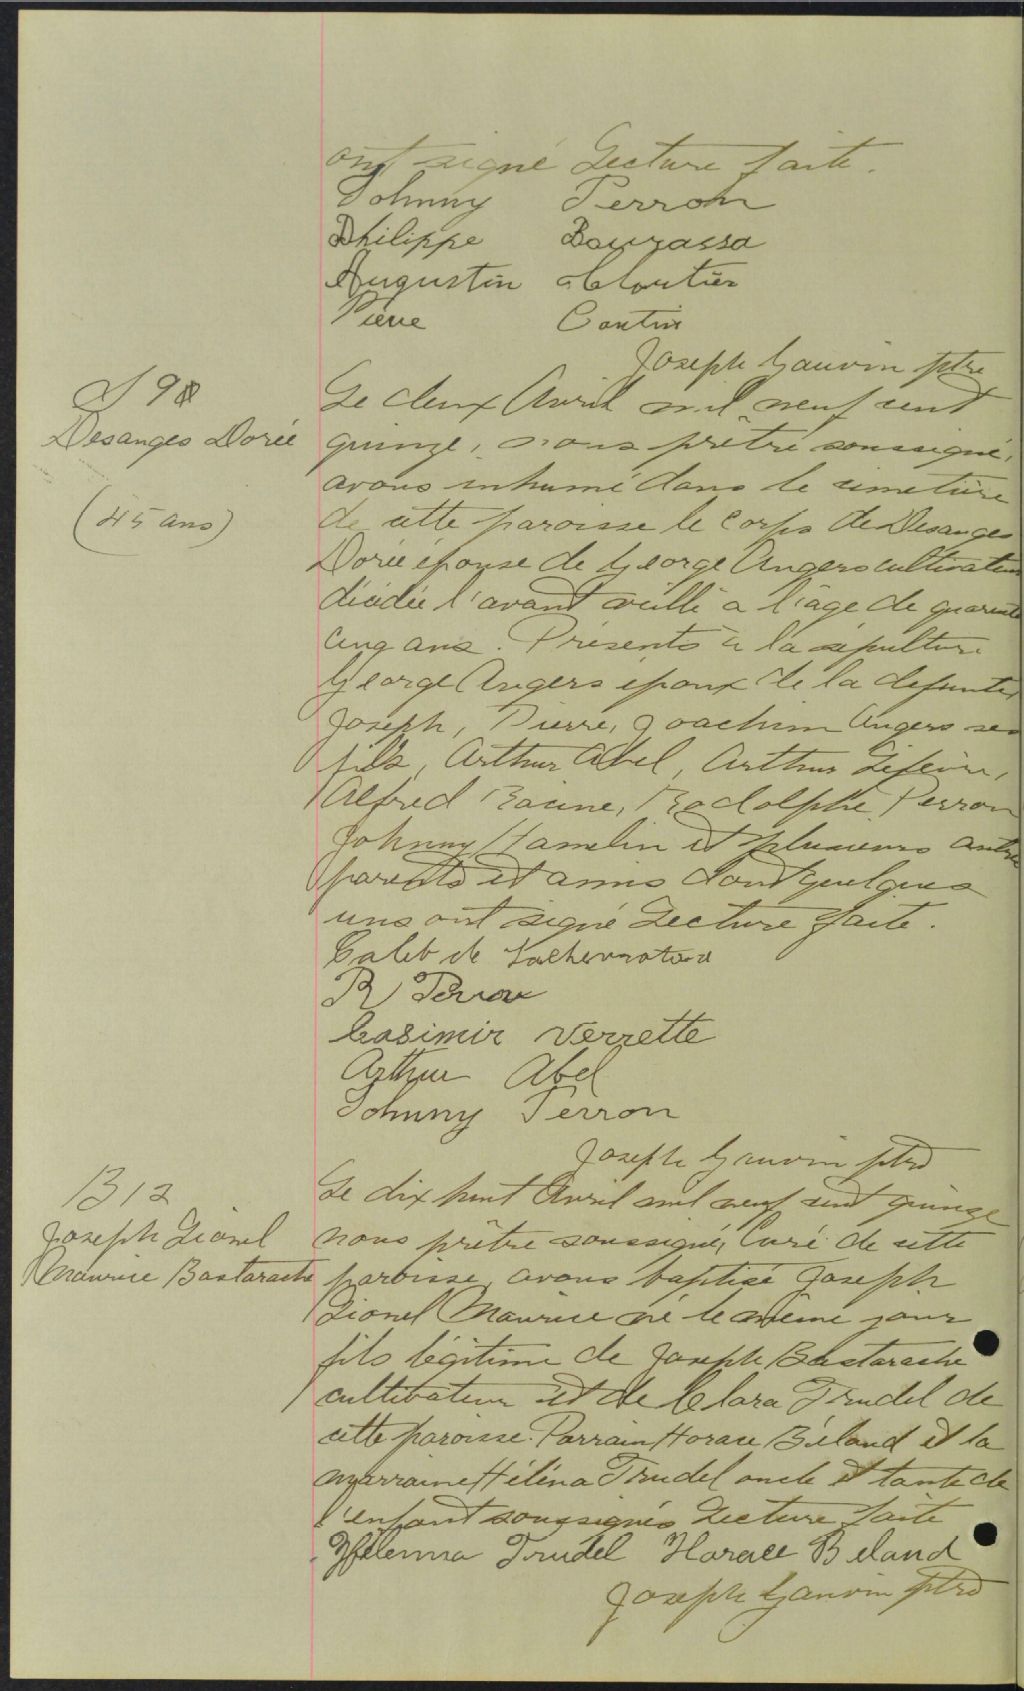 ont signé Lecture faite.
Johnny Perron
Philippe Bourassa
Augustin Cloutier
Pierre Cantin
Joseph Gauvin ptre
S 9
Desanges Dorée
(45 ans)
Le deux Avril mil neuf cent
quinze, nous prêtre soussigné,
avons inhumé dans le cimetière
de cette paroisse le corps de Desanges
Dorée épouse de George Angers cultivateur
décédée l'avant veille a l'âge de quarante
cinq ans. Présents à la sépulture
George Angers époux de la defunte,
Joseph, Pierre, Joachim Angers ses
fils, Arthur Abel, Arthur Lefeivre,
Alfred Racine, Rodolphe Perron
Johnny Hamelin et plusieurs autres
parents et amis dont quelques
uns ont signé Lecture faite.
Calet de
R Perron
Casimir Verrette
Arthur Abel
Johnny Perron
Joseph Gauvin ptre
B 12
Joseph Lionel
Maurice Bastarache
Le dix huit Avril mil neuf cent quinze
nous prêtre soussigné, Curé de cette
paroisse, avons baptisé Joseph
Lionel Maurice né le même jour
fils légitime de Joseph Bastarache
cultivateur et de Clara Trudel de
cette paroisse. Parrain Horace Béland et la
marraine Héléna Trudel oncle et tante de
l'enfant soussignés Lecture faite
Helenna Trudel Horace Beland
Joseph Gauvin ptre